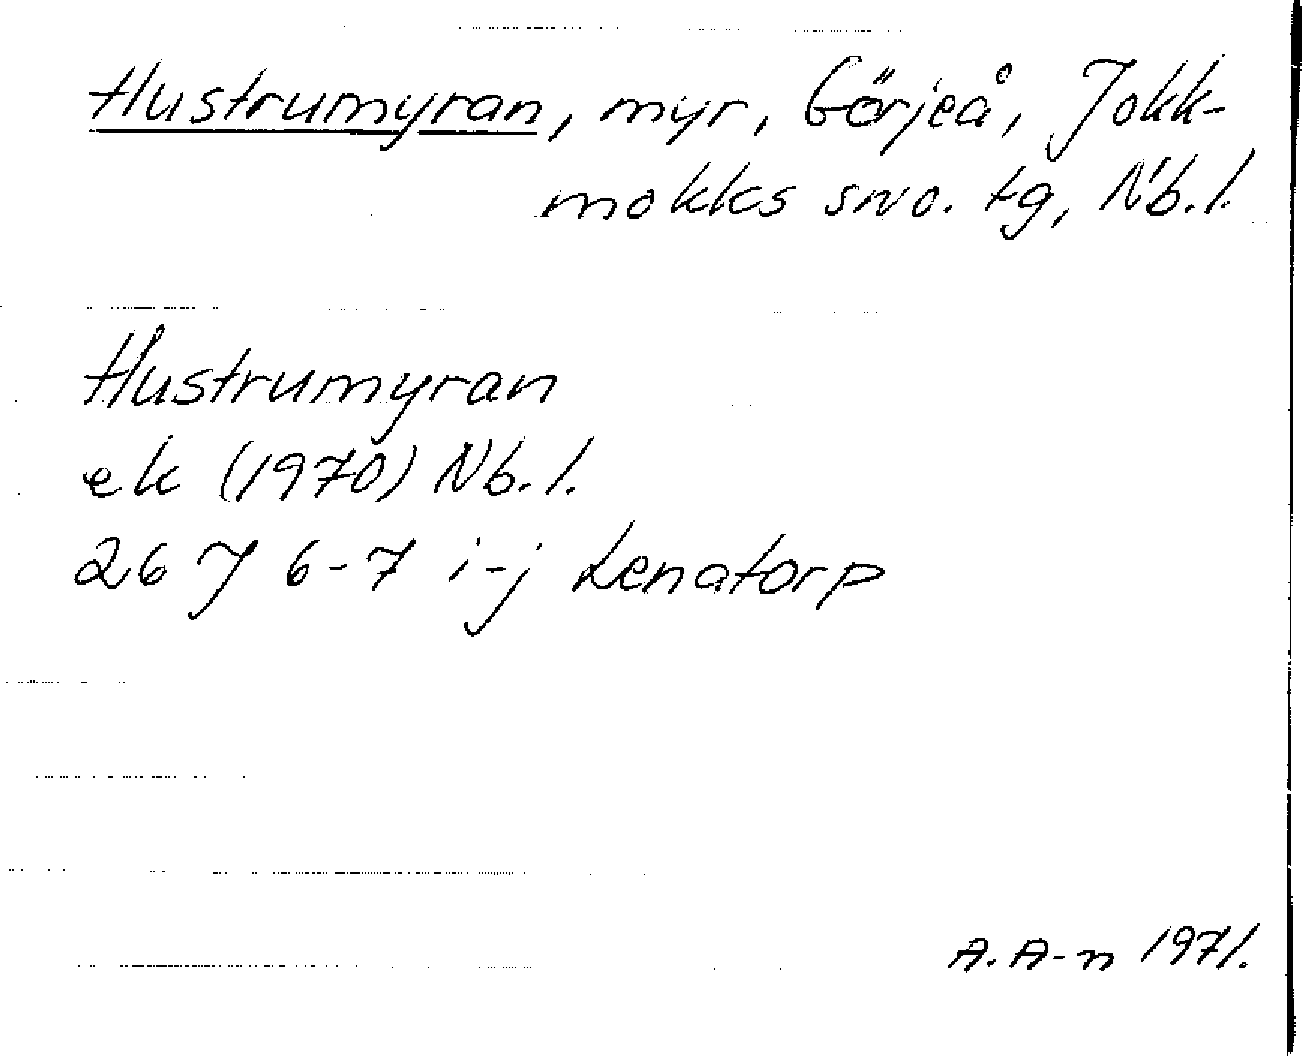 Hustrumyran, myr, Görjeå, Jokk-
mokks sno. tg, Nb.l.
Hustrumyran
ek (1970) Nb.l.
26 J 6-7 i-j Lenatorp
A. A-n 1971.